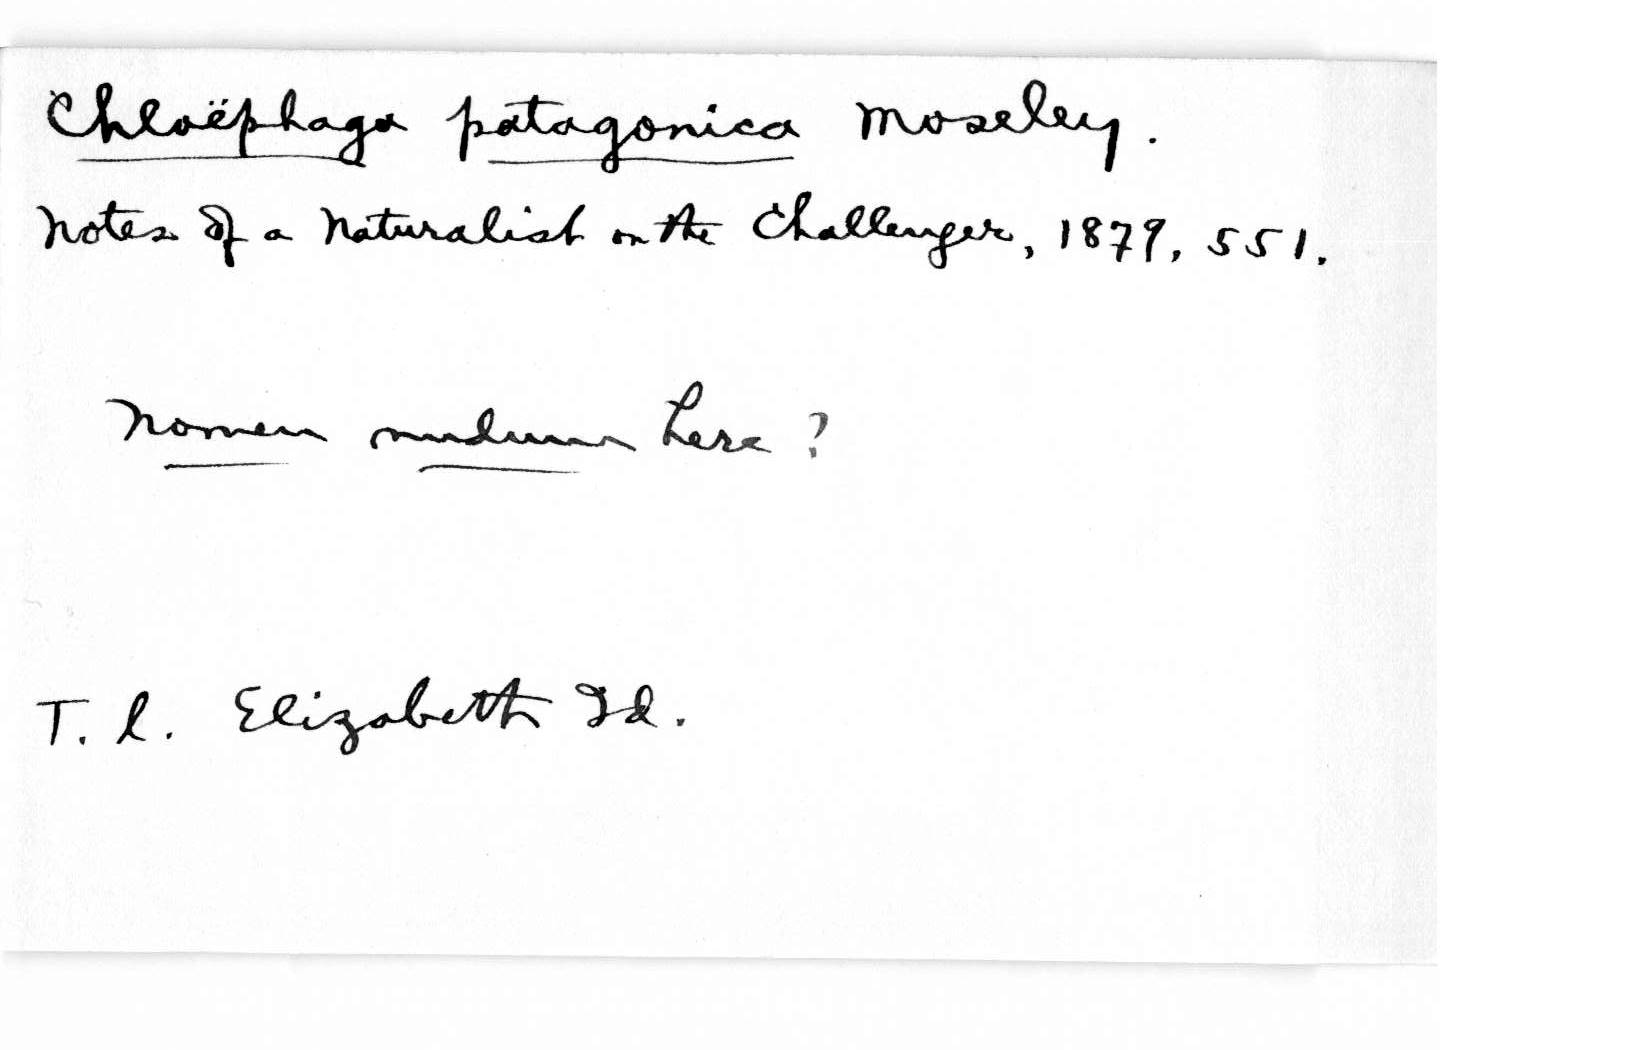 Chloëphaga patagonica Moseley.
Notes of a Naturalist on the Challenger, 1879, 551.
Nomen nudum here?
T. l. Elizabeth Id.